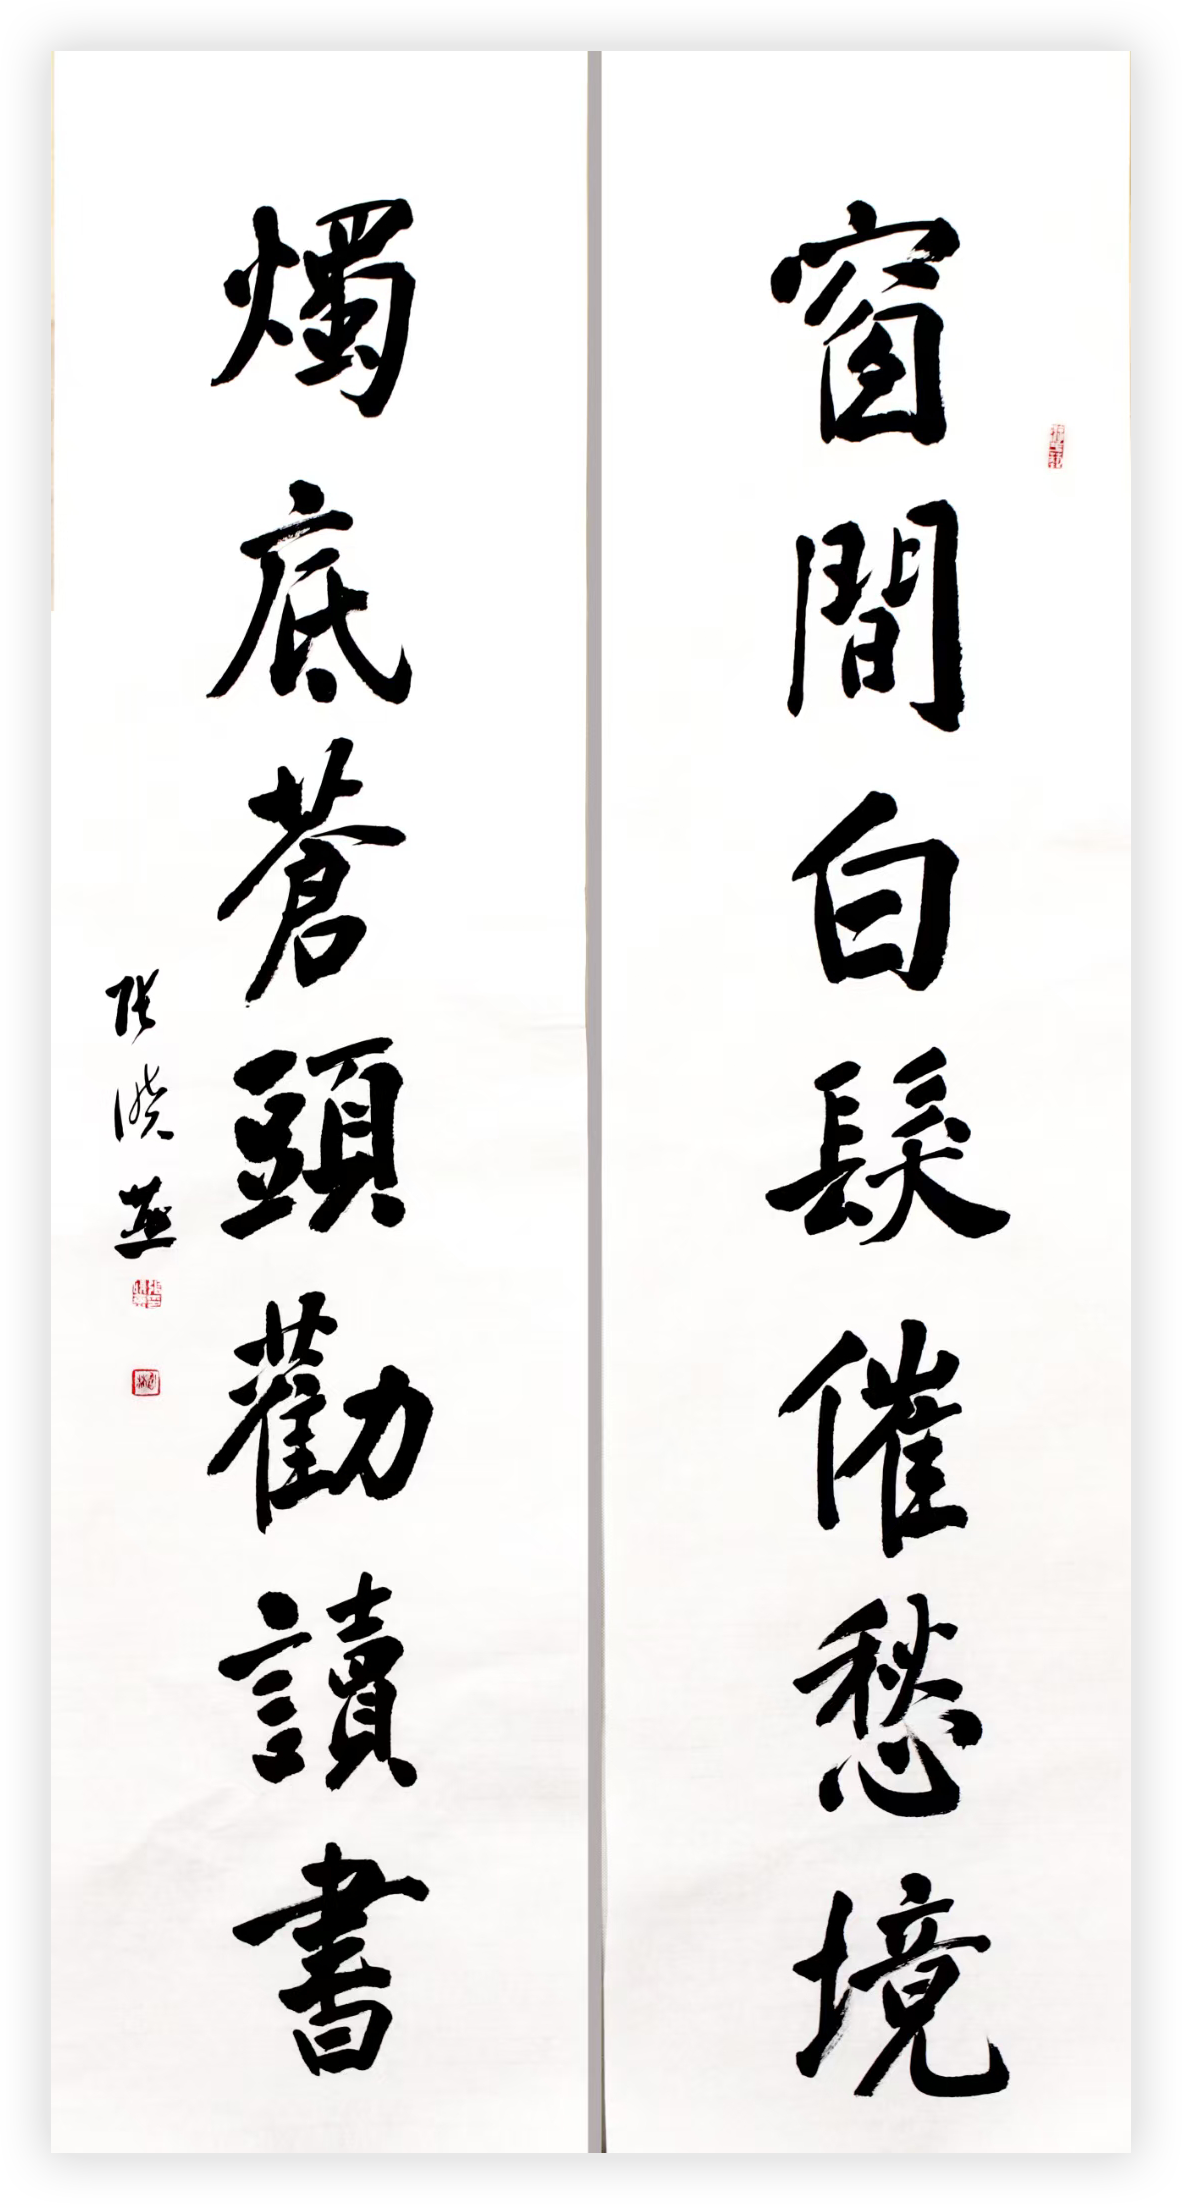 窗間白髮催愁境
燭底蒼頭勸讀書